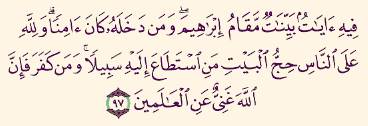 فِيهِ ءَايَٰتٌۢ بَيِّنَٰتٌ مَّقَامُ إِبْرَٰهِيمَ ۖ وَمَن دَخَلَهُۥ كَانَ ءَامِنًا ۗ وَلِلَّهِ
عَلَى النَّاسِ حِجُّ الْبَيْتِ مَنِ اسْتَطَاعَ إِلَيْهِ سَبِيلًا ۚ وَمَن كَفَرَ فَإِنَّ
اللَّهَ غَنِيٌّ عَنِ الْعَٰلَمِينَ ٩٧